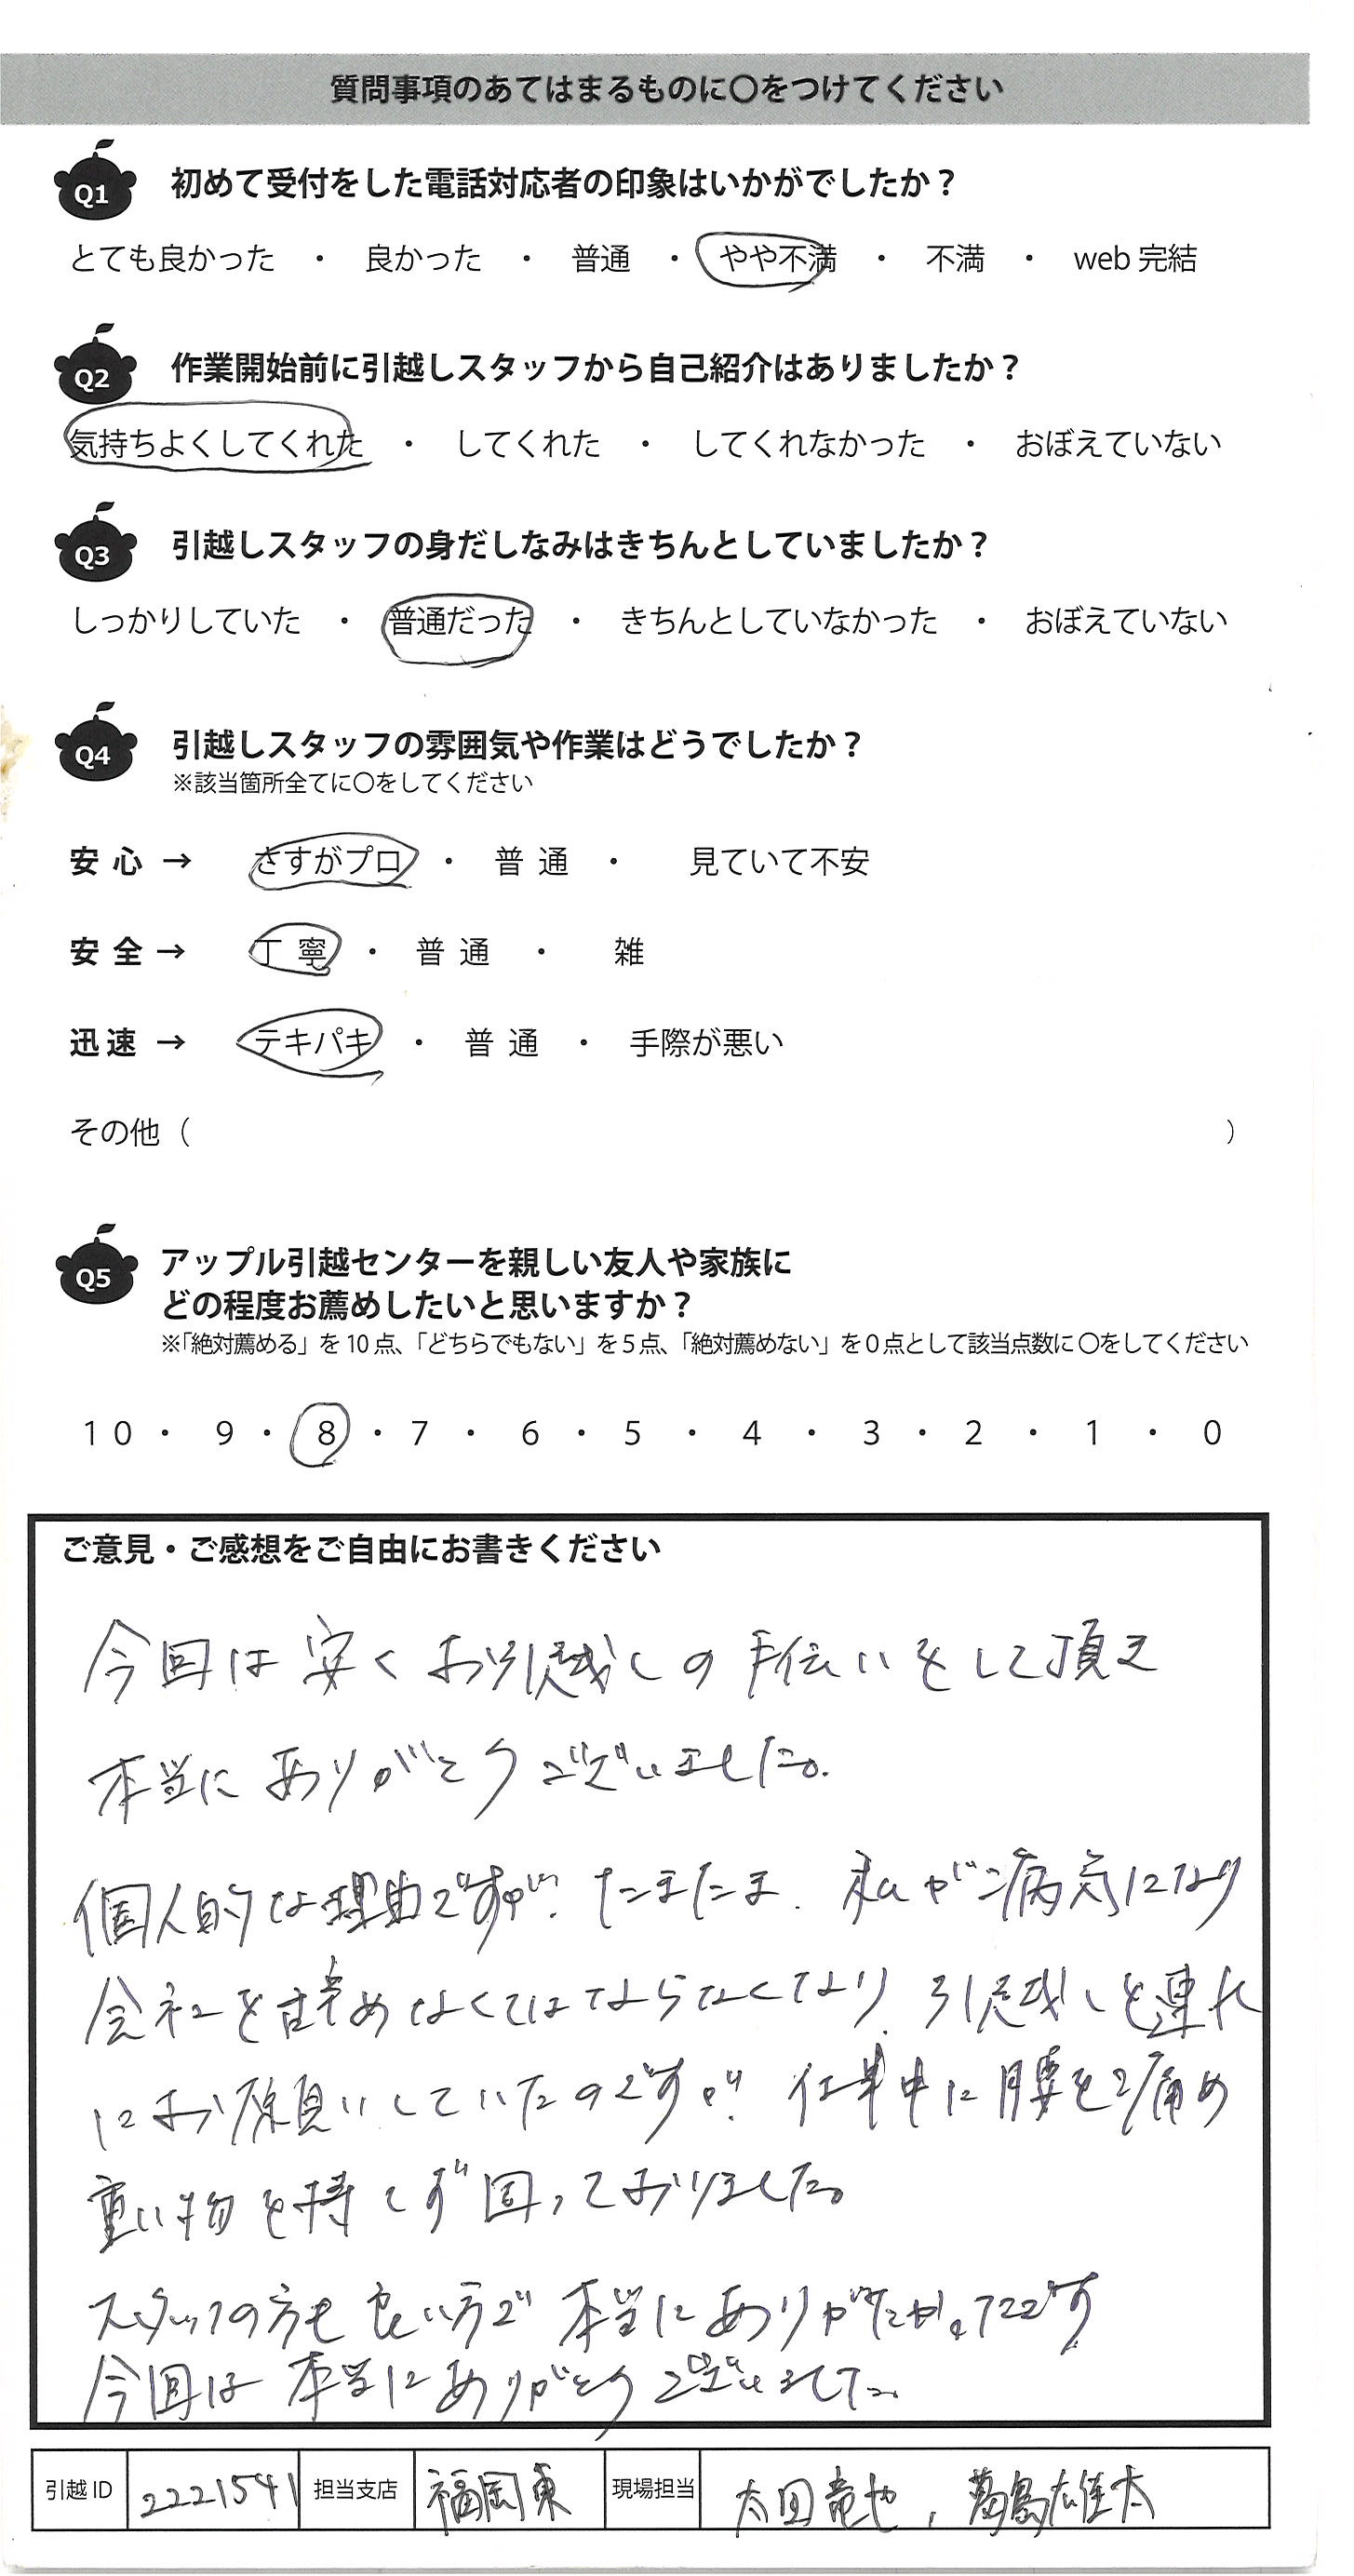 質問事項のあてはまるものに〇をつけてください
Q1 初めて受付をした電話対応者の印象はいかがでしたか？
とても良かった ・ 良かった ・ 普通 ・ やや不満 ・ 不満 ・ web 完結
Q2 作業開始前に引越しスタッフから自己紹介はありましたか？
気持ちよくしてくれた ・ してくれた ・ してくれなかった ・ おぼえていない
Q3 引越しスタッフの身だしなみはきちんとしていましたか？
しっかりしていた ・ 普通だった ・ きちんとしていなかった ・ おぼえていない
Q4 引越しスタッフの雰囲気や作業はどうでしたか？
※該当箇所全てに〇をしてください
安心 → さすがプロ ・ 普通 ・ 見ていて不安
安全 → 丁寧 ・ 普通 ・ 雑
迅速 → テキパキ ・ 普通 ・ 手際が悪い
その他（ ）
Q5 アップル引越センターを親しい友人や家族に
どの程度お薦めしたいと思いますか？
※「絶対薦める」を10点、「どちらでもない」を5点、「絶対薦めない」を0点として該当点数に〇をしてください
10 ・ 9 ・ 8 ・ 7 ・ 6 ・ 5 ・ 4 ・ 3 ・ 2 ・ 1 ・ 0
ご意見・ご感想をご自由にお書きください
今回は安くお引越しの手伝いをして頂き
本当にありがとうございました。
個人的な理由ですが、たまたま、私が病気になり
会社を辞めなくてはならなくなり、引越しを
にお願いしていたのですが、仕事中に腰を痛め
重い物を持てず困っておりました。
スタッフの方も良い方で本当にありがたかったです
今回は本当にありがとうございました。
引越ID 2221541 担当支店 福岡東 現場担当 太田竜也, 葛島雄太